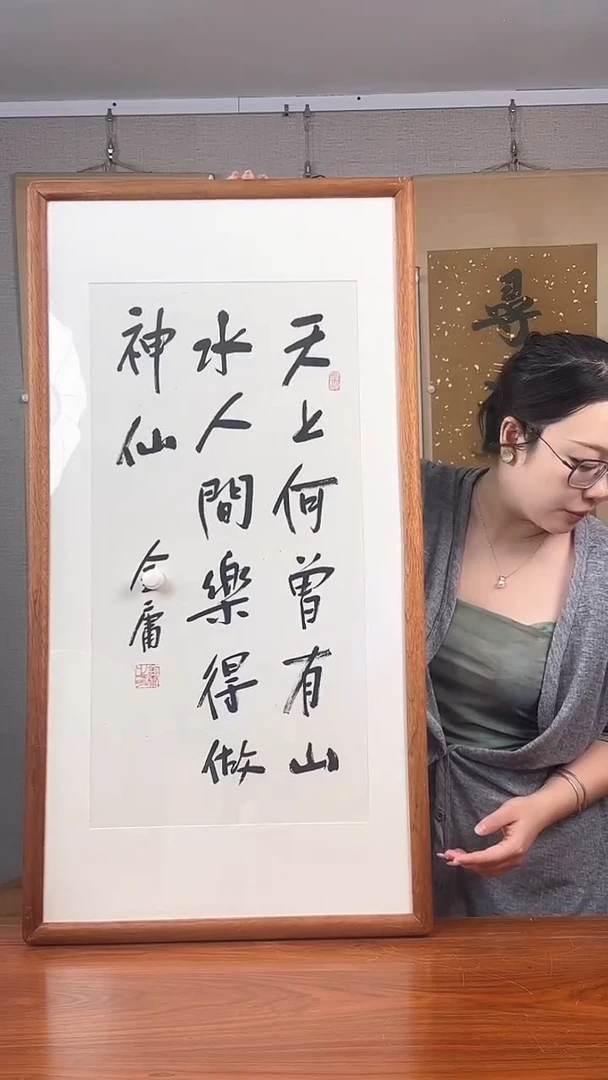 天上何曾有山
水人間樂得做
神仙
金庸
尋